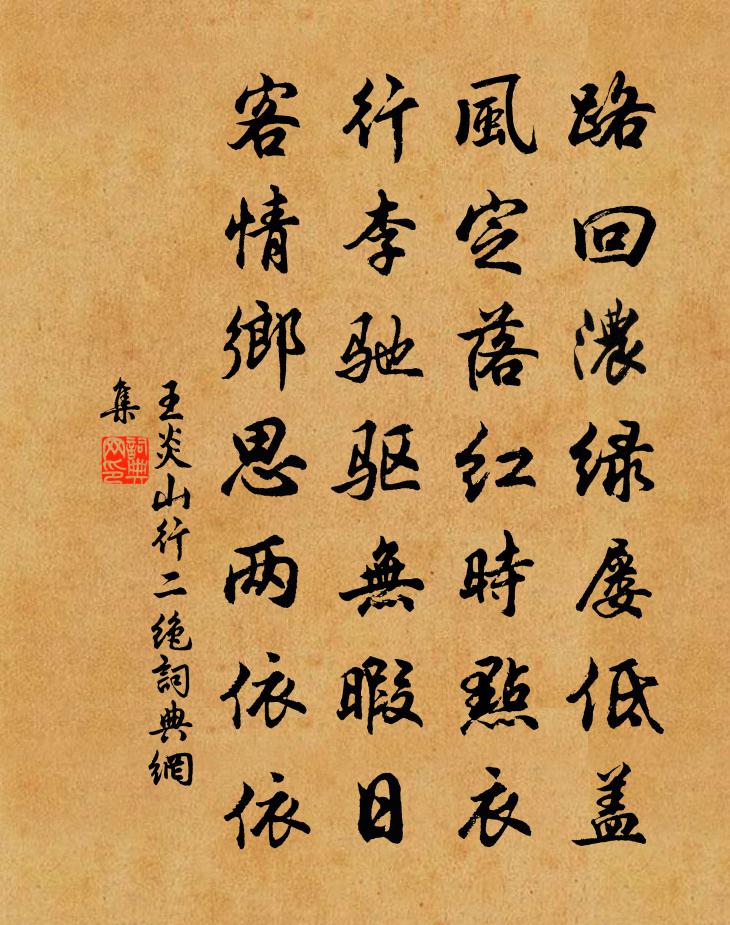 路回濃緑屡低盖
風定落红時點衣
行李馳驱無暇日
客情鄉思两依依
王炎山行二绝詞典網
集
詞典网印